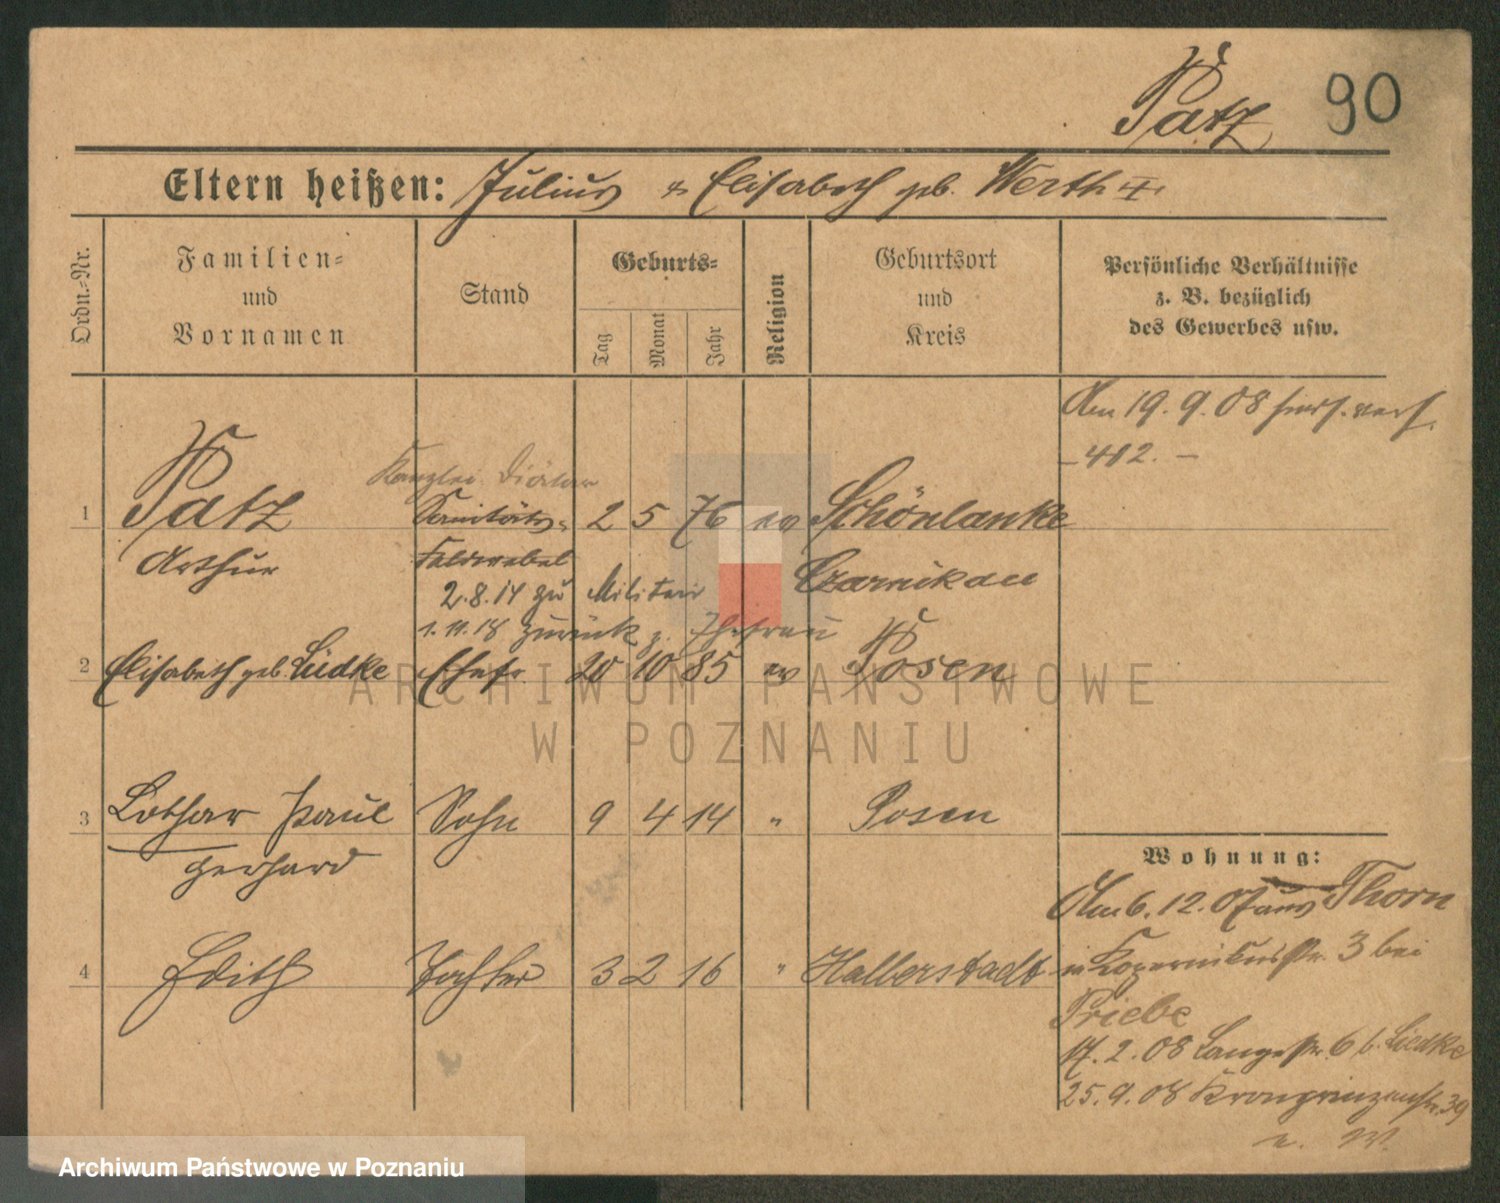 Patz 90
Eltern heißen: Julius & Elisabeth geb. Werth
Ordn.-Nr.
Familien-
und
Vornamen
Stand
Geburts-
Tag
Monat
Jahr
Religion
Geburtsort
und
Kreis
Persönliche Verhältnisse
z. B. bezüglich
des Gewerbes usw.
Am 19. 9. 08
- 412. -
Kanzlei Diätar
1 Patz Sanitäts- 2 5 76 ev Schönlanke
Arthur Feldwebel Czarnikau
2.8.14 zu Militair
1.11.18 zurück z. Ehefrau
2 Elisabeth geb. Lüdke Ehefr. 20 10 85 ev Posen
ARCHIWUM PAŃSTWOWE
W POZNANIU
3 Lothar Paul Sohn 9 4 14 " Posen
Gerhard
4 Edith Tochter 3 2 16 " Halberstadt
Wohnung:
Am 6. 12. 07 aus Thorn
in Kopernikusstr. 3 bei
Priebe
17. 2. 08 Langestr. 6 b. Liedke
25. 9. 08 Kronprinzenstr. 39
u. W.
Archiwum Państwowe w Poznaniu